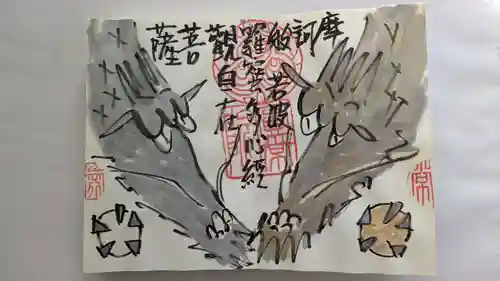 摩
訶
般若波
羅蜜多心經
觀自在
菩
薩